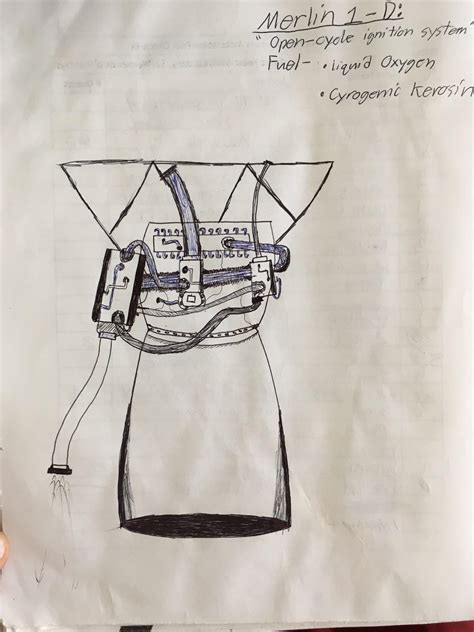 Merlin 1-D:
"Open-cycle ignition system"
Fuel- • liquid Oxygen
• Cyrogenic Kerosin